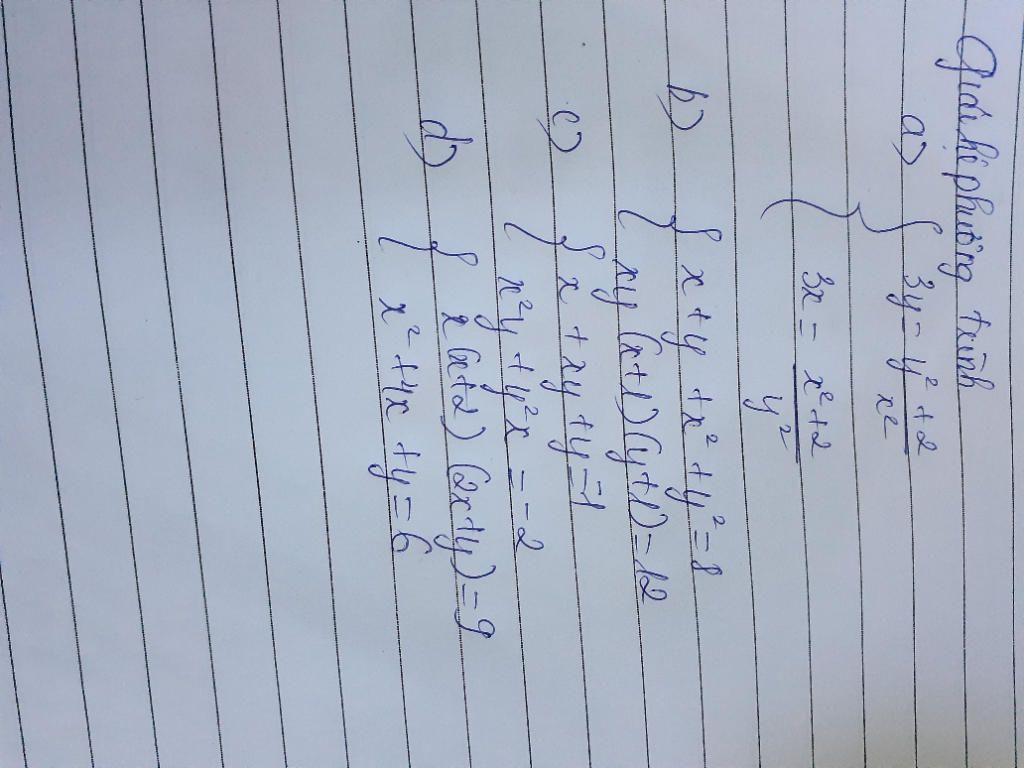 Giải hệ phương trình
a) { 3y = y² + 2 / x²
3x = x² + 2 / y²
b) { x + y + x² + y² = 8
xy (x+1)(y+1) = 12
c) { x + xy + y = -1
x²y + y²x = -2
d) { x(x+2)(2x+y) = 9
x² + 4x + y = 6